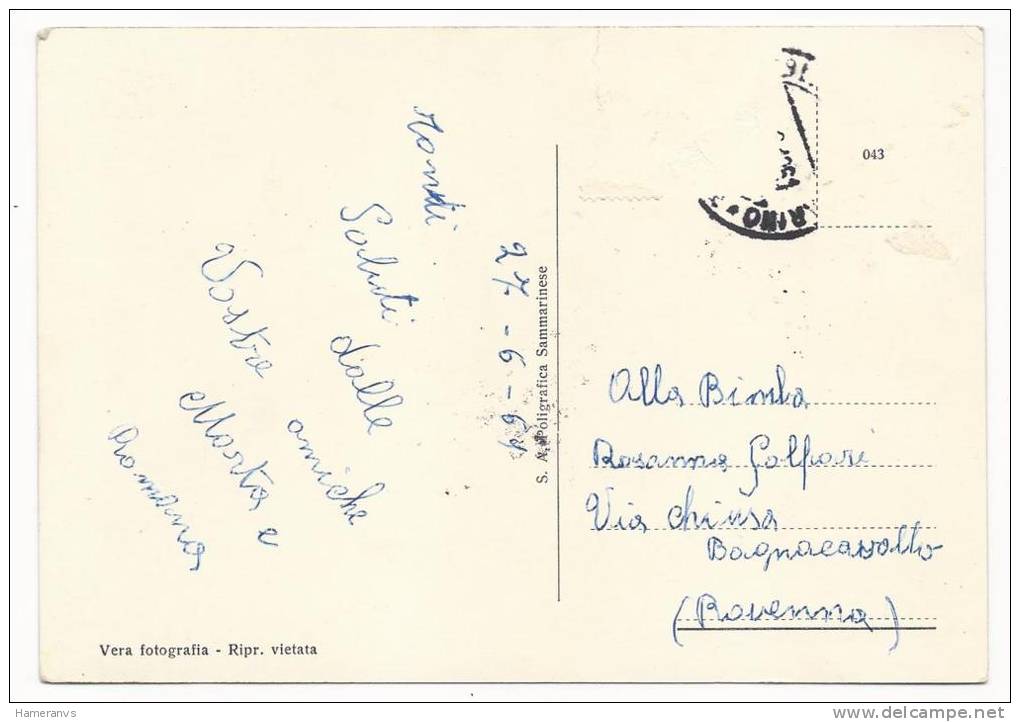 27-6-64
Tanti
Saluti
dalle
amiche
Vostre
Marta e
Romana
Vera fotografia - Ripr. vietata
S. A. Poligrafica Sammarinese
043
RINO
Alla Bimba
Rosanna Golfari
Via Chiusa
Bagnacavallo
(Ravenna)
Hameranvs
www.delcampe.net